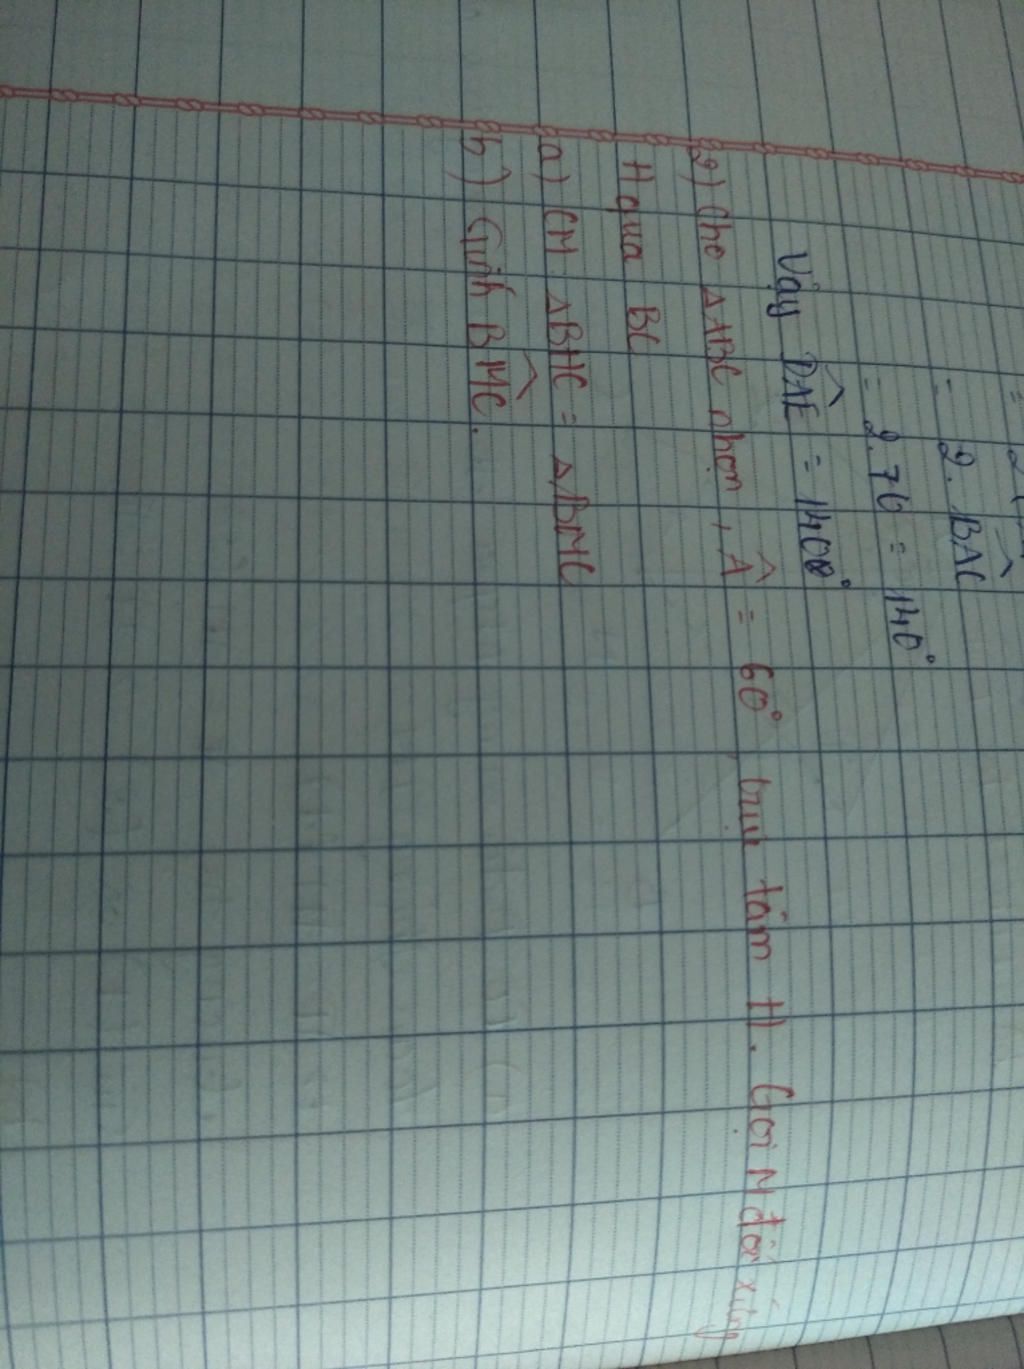 = 2. BAC
= 2.70 = 140°
Vậy DAE = 140°
2) Cho ΔABC nhọn, Â = 60°, trực tâm H. Gọi M đối xứng
H qua BC
a) CM ΔBHC = ΔBMC
b) Tính BMC.